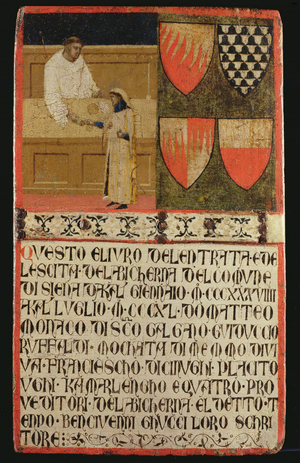 QUESTO ELIVRO DELENTRATA· E DE
LESCITA· DELABICHERNA DEL COMUNE
DI SIENA DA KAL GIENNAIO· M·CCCXXXVIIII
A KAL LUGLIO· M·CCCXL· DO MATTEO
MONACO DI SCO GALGANO· GUDUCCIO
RUFFALDI· MOCHATA DI MEMMO DI VI
VA· FRANCIESCHO· DI
UGHI· KAMARLENGHO E QUATRO· PRO
VEDITORI· DELABICHERNA· EL DETTO· T
ENPO· BENCIVENNI GHUCCI LORO SCHRI
TORE